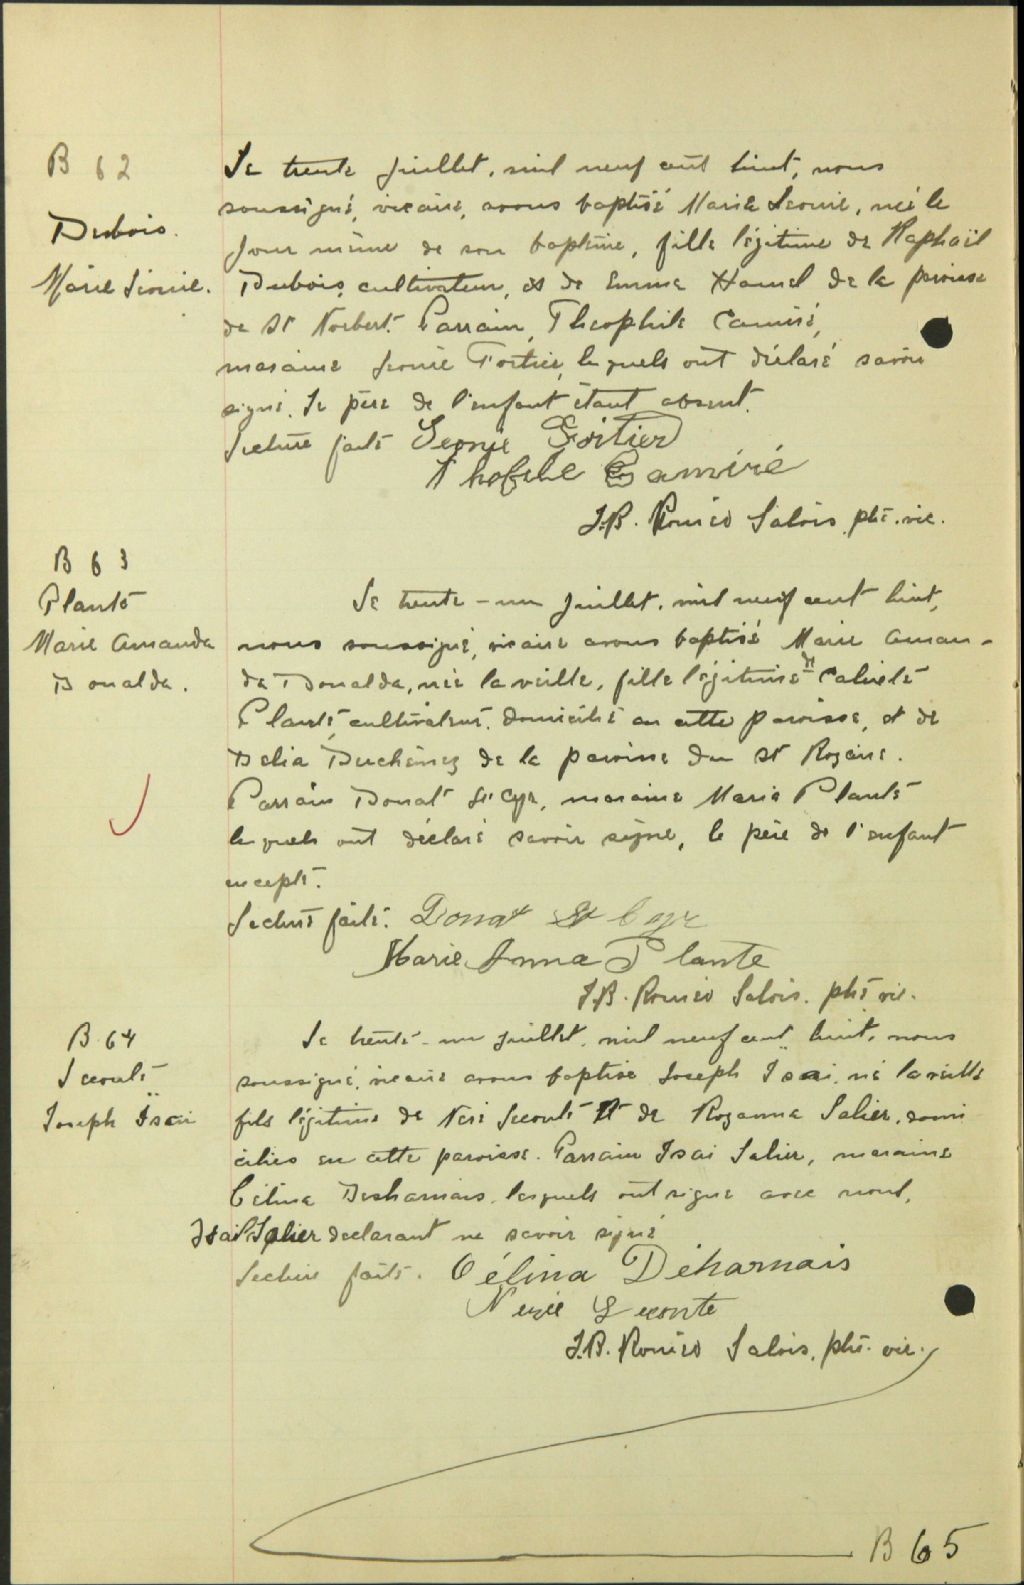 B 62
Dubois.
Marie Léonie.
Le trente Juillet, mil neuf cent huit, nous
soussigné, vicaire, avons baptisé Marie Leonie, née le
jour même de son baptême, fille légitime de Raphaël
Dubois, cultivateur, et de Emma Hamel de la paroisse
de St Norbert. Parrain, Theophile Camiré,
maraine Leonie Fortier, lesquels ont déclaré savoir
signé. Le père de l'enfant étant absent.
Lecture faite Leonie Fortier
Camiré
J.B. Roméo Salois, ptre. vic.
B 63
Planté
Marie Amanda
Donalda.
Le trente-un Juillet, mil neuf cent huit,
nous soussigné, vicaire avons baptisé Marie Aman-
da Donalda, née la veille, fille légitime de
Planté, cultivateur, domicilié en cette paroisse, et de
Delia Duchesnes de la paroisse du St Rozaire.
Parrain Donat St Cyr, maraine Marie Planté
lesquels ont déclaré savoir signé, le père de l'enfant
excepté.
Lecture faite. Donat St Cyr
Marie Anna Plante
J.B. Roméo Salois. ptre vic.
B. 64
Lecomte
Joseph Isaï
Le trente-un Juillet, mil neuf cent huit, nous
soussigné, vicaire avons baptisé Joseph Isaï, né la veille
fils légitime de Lecomte et de Rozanna Salier, domi
ciliés en cette paroisse. Parrain Isai Salier, maraine
Célina Desharnais, lesquels ont signé avec nous,
Isaï Salier declarant ne savoir signé
Lecture faite. Célina Déharnais
Leconte
J.B. Roméo Salois. ptre. vic.
B 65